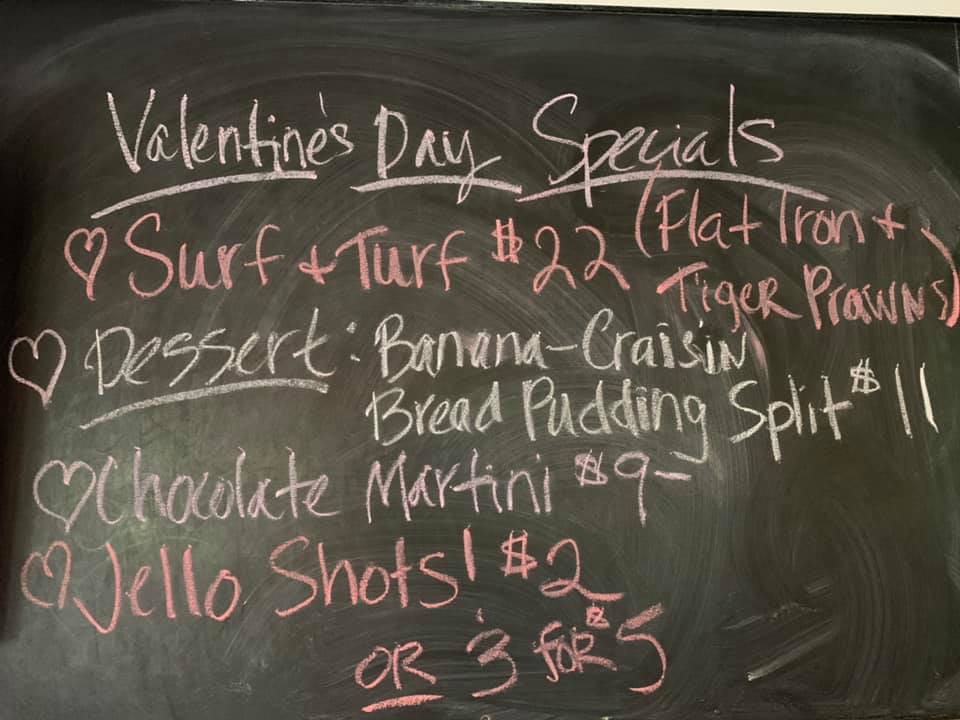 Valentine's Day Specials
♡ Surf + Turf $22 (Flat Iron +
Tiger Prawns)
♡ Dessert: Banana-Craisin
Bread Pudding Split $11
♡ Chocolate Martini $9-
♡ Jello Shots! $2
OR 3 for $5